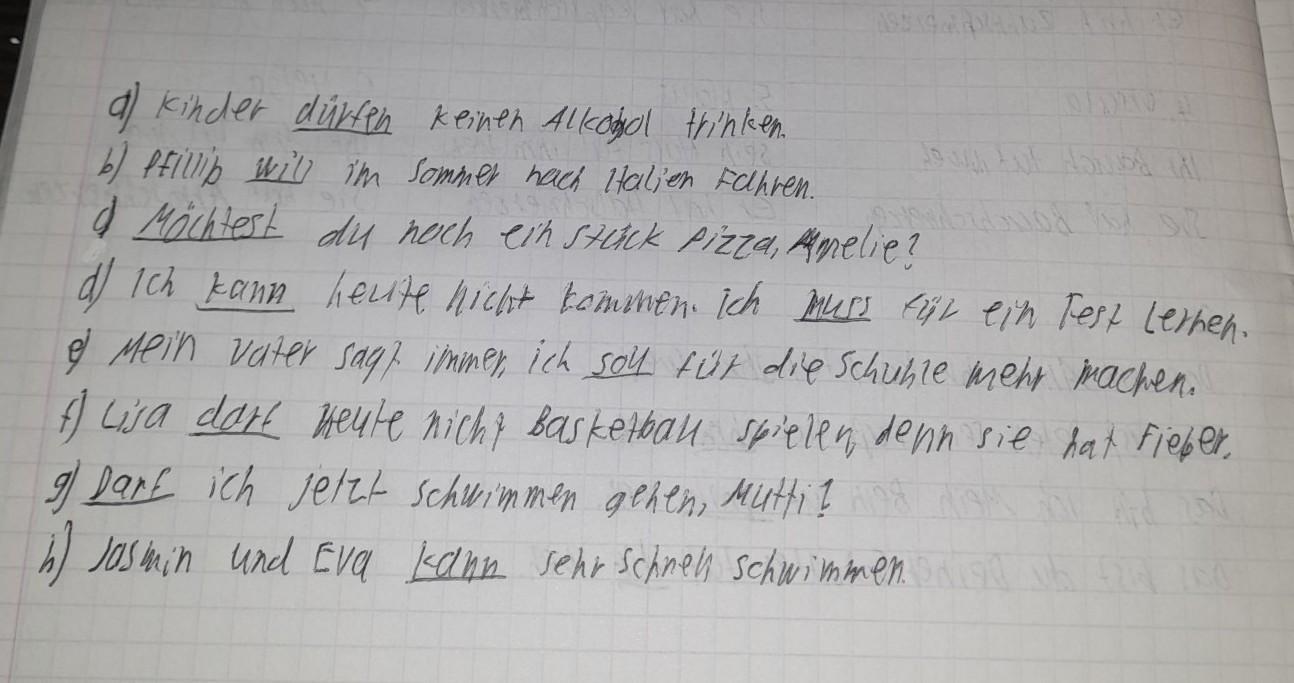 a) Kinder dürfen keinen Alkohol trinken.
b) Pfillip will im Sommer nach Italien Fahren.
c) Möchtest du noch ein stück Pizza, Amelie?
d) Ich kann heute nicht kommen. Ich muss für ein Test Lernen.
e) Mein Vater sagt immer, ich soll für die Schuhle mehr machen.
f) Lisa darf Heute nicht Basketball spielen, denn sie hat Fieber.
g) Darf ich jetzt schwimmen gehen, Mutti?
h) Jasmin und Eva kann sehr schnell schwimmen.